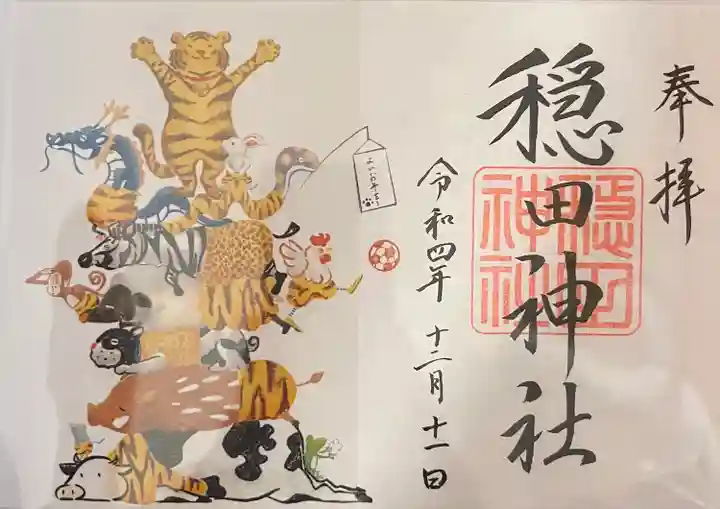 奉拝
穏田神社
穏田
神社
令和四年 十二月 十一日